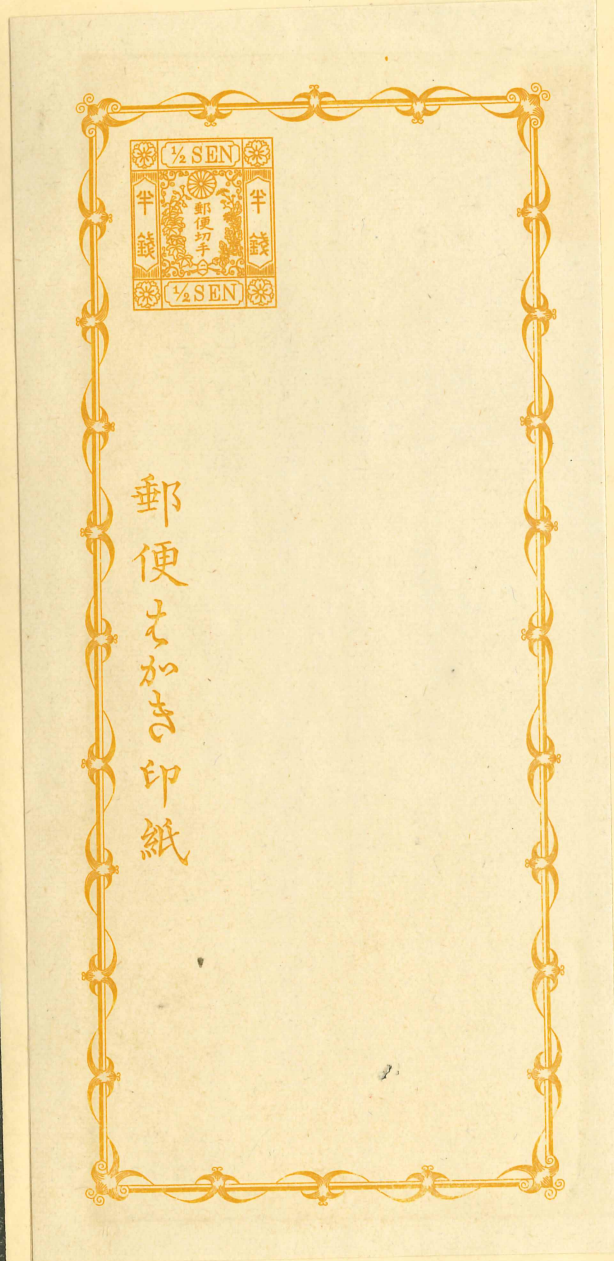 ½ SEN
半錢
郵便切手
半錢
½ SEN
郵便はがき印紙